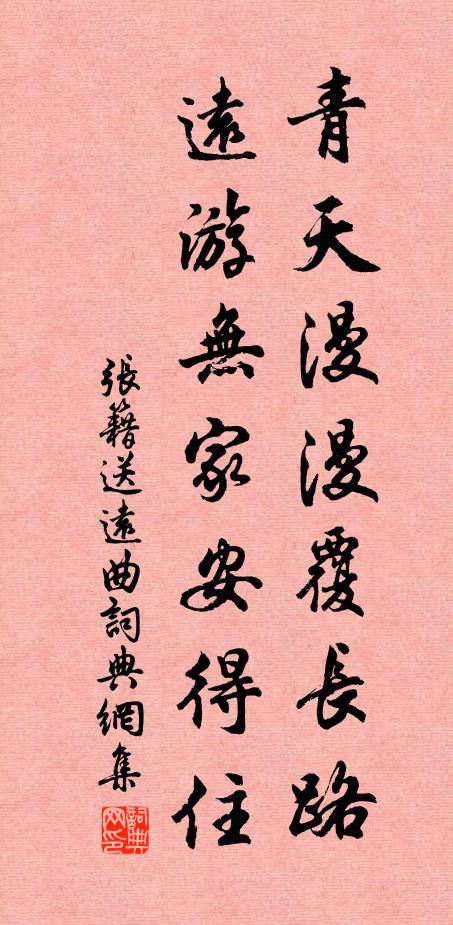 青天漫漫覆長路
遠游無家安得住
張籍送遠曲詞典網集
詞典網印